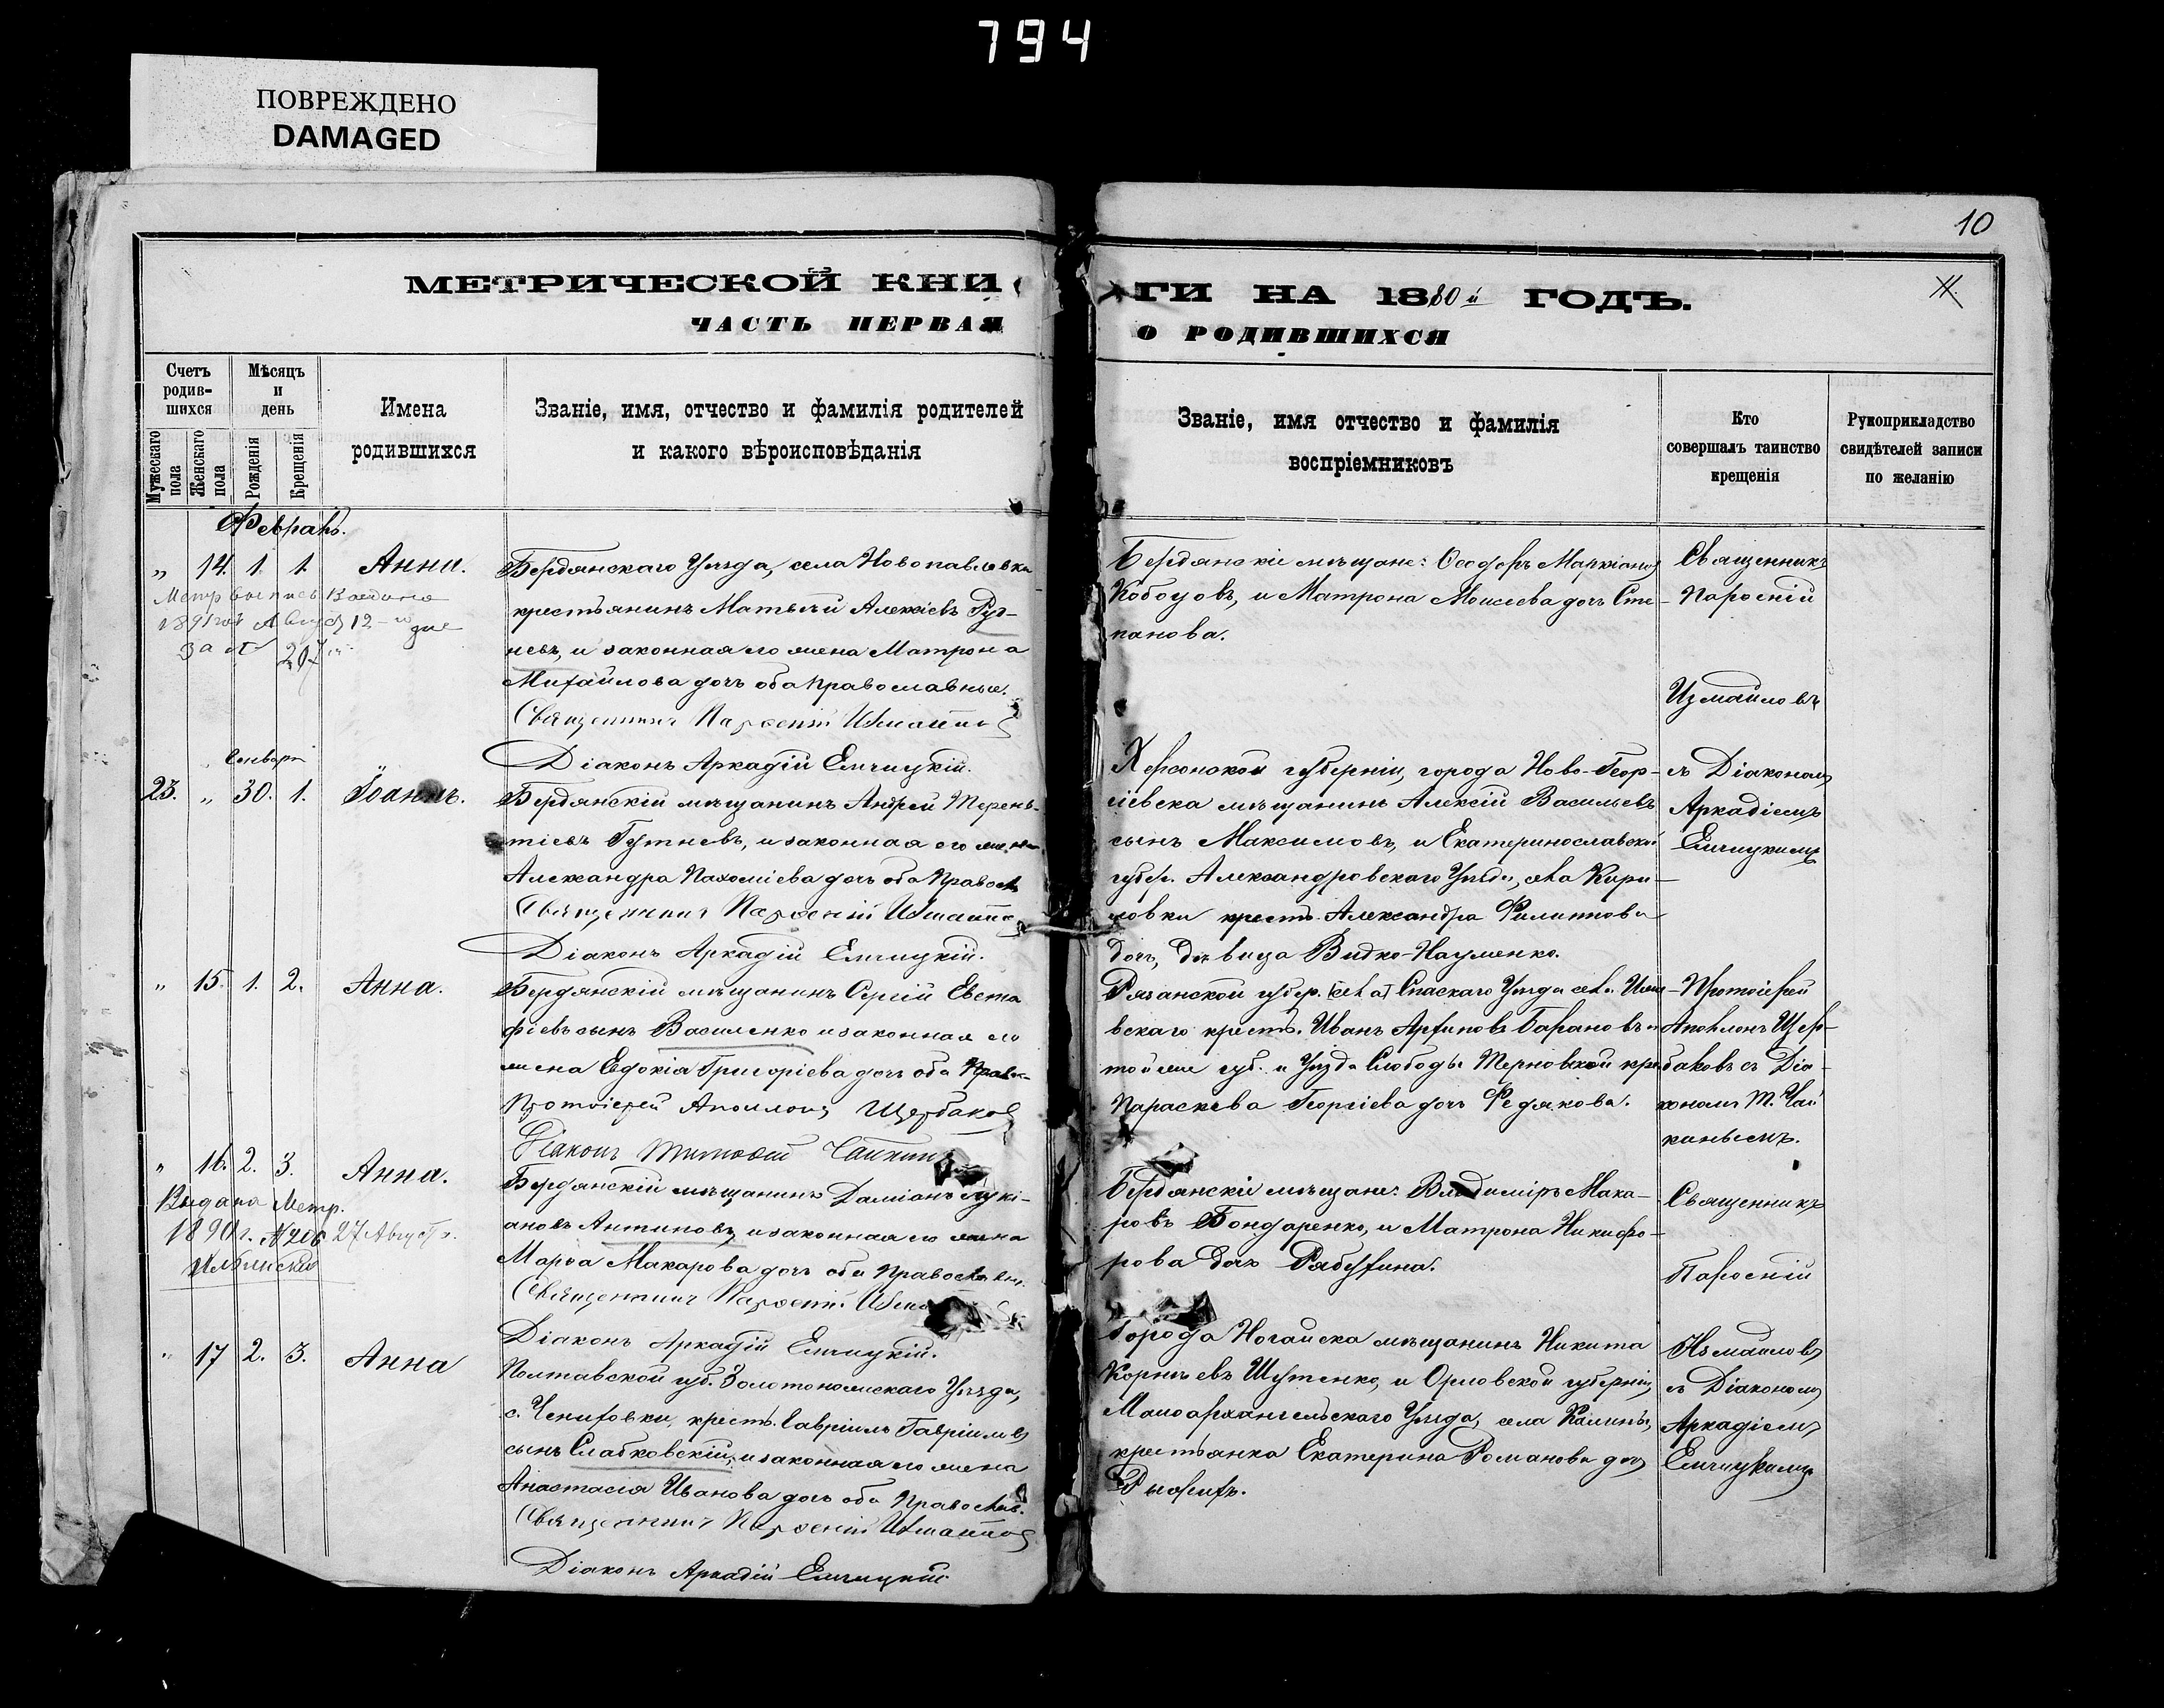 794
ПОВРЕЖДЕНО
DAMAGED
10
МЕТРИЧЕСКОЙ КНИ
ЧАСТЬ ПЕРВАЯ
ГИ НА 1880й ГОДЪ.
О РОДИВШИХСЯ
Счетъ родив-шихся
Мѣсяцъ и день
Мужескаго пола
Женскаго пола
Рожденія
Крещенія
Имена родившихся
Званіе, имя, отчество и фамилія родителей
и какого вѣроисповѣданія
Званіе, имя отчество и фамилія
воспріемниковъ
Кто
совершалъ таинство
крещенія
Рукоприкладство
свидѣтелей записи
по желанію
Февраль.
„ 14. 1. 1. Анна.
1891 12
За № 207
Бердянскаго Уѣзда, села Новопавловки
крестьянинъ Матѳей Алексѣевъ Руд-
невъ, и законная его жена Матрона
Михайлова дочь оба православные.
Священникъ Парѳеній Измаиловъ
Діаконъ Аркадій Елчицкій.
Бердянскіе мѣщане: Ѳеодоръ Маркіановъ
Кобоцовъ, и Матрона Моисеева дочь Сте-
панова.
Священникъ
Парѳеній
Измаиловъ
Генваря
23. „ 30. 1. Іоаннъ.
Бердянскій мѣщанинъ Андрей Терень-
тіевъ Гутневъ, и законная его жена
Александра Пахоміева дочь оба Правосл
Священникъ Парѳеній Измаиловъ
Діаконъ Аркадій Елчицкій.
Херсонской губерніи, города Ново-Геор-
гіевска мѣщанинъ Алексій Васильевъ
сынъ Максимовъ, и Екатеринославской
губер. Александровскаго Уѣзда, села Кири-
ловки крест. Александра Филиппова
дочь, дѣвица Видко-Науменко.
съ Діакономъ
Аркадіемъ
Елчицкимъ
„ 15. 1. 2. Анна.
Бердянскій мѣщанинъ Сергій Евста
фіевъ сынъ Василенко и законная его
жена Евдокія Григоріева дочь оба Правос.
Протоіерей Аполлонъ Щербаковъ
Діаконъ Тимоѳей Чайкинъ
Рязанской губер. Спаскаго Уѣзда села
вскаго крест. Иванъ Архиповъ Барановъ и
той же губ. и Уѣзда Слободы Терновской кре
Параскева Георгіева дочь Федякова.
Протоіерей
Аполлонъ Щер-
баковъ съ Діа-
кономъ Т. Чай
кинымъ.
„ 16. 2. 3. Анна.
Выдана Метр.
1890 г. № 206 27 Августа.
Бердянскій мѣщанинъ Даміанъ Лукі-
ановъ Антиповъ, и законная его жена
Марѳа Макарова дочь оба Православн.
Священникъ Парѳеній
Діаконъ Аркадій Елчицкій.
Бердянскіе мѣщане: Владиміръ Мака-
ровъ Бондаренко, и Матрона Никифо-
рова дочь Рябухина.
Священникъ
Парѳеній
„ 17 2. 3. Анна
Полтавской губ. Золотоношскаго Уѣзда,
с. Чениховки, крест. Гавріилъ Гавріиловъ
сынъ Слабковскій, и законная его жена
Анастасія Иванова дочь оба Православ.
Священникъ Парѳеній Измаиловъ
Діаконъ Аркадій Елчицкій
Города Ногайска мѣщанинъ Никита
Корнѣевъ Шутенко, и Орловской губерніи,
Малоархангельскаго Уѣзда, села
крестьянка Екатерина Романова дочь
Измаиловъ
съ Діакономъ
Аркадіемъ
Елчицкимъ